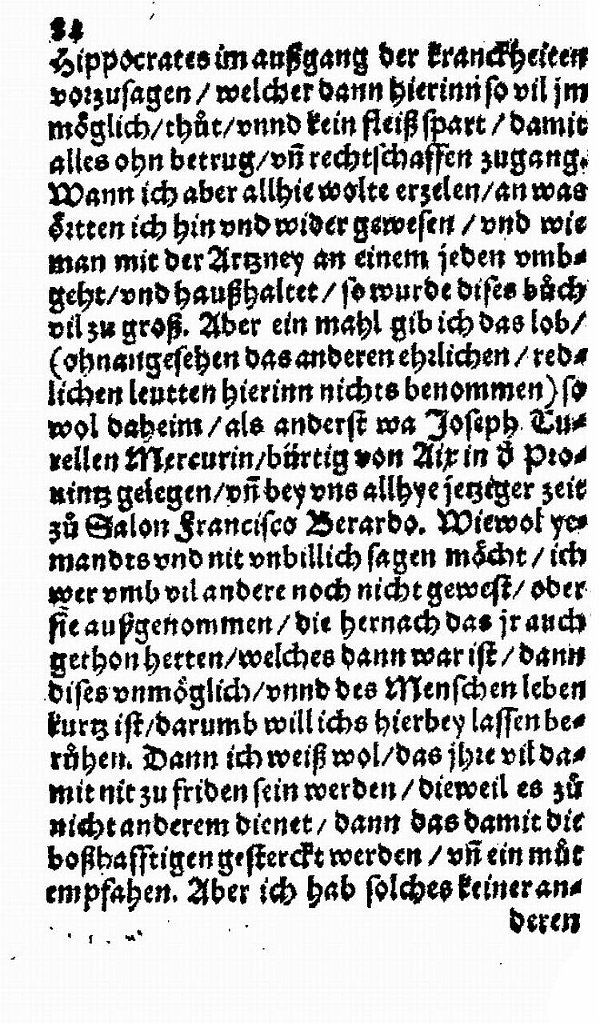 84
Hippocrates im außgang der kranckheiten
vorzusagen / welcher dann hierinn so vil jm
möglich / thůt / vnnd kein fleiß spart / damit
alles ohn betrug / vñ rechtschaffen zugang.
Wann ich aber allhie wolte erzelen / an was
örtten ich hin vnd wider gewesen / vnd wie
man mit der Artzney an einem jeden vmb⸗
geht / vnd haußhaltet / so wurde dises bůch
vil zu groß. Aber ein mahl gib ich das lob /
(ohnangesehen das anderen ehrlichen / red⸗
lichen leutten hierinn nichts benommen) so
wol daheim / als anderst wa Joseph Tu⸗
rellen Mercurin / bürtig von Aix in d Pro⸗
uintz gelegen / vñ bey vns allhye jetziger zeit
zů Salon Francisco Berardo. Wiewol ye⸗
mandts vnd nit vnbillich sagen möcht / ich
wer vmb vil andere noch nicht gewest / oder
sie außgenommen / die hernach das jr auch
gethon hetten / welches dann war ist / dann
dises vnmöglich / vnnd des Menschen leben
kurtz ist / darumb will ichs hierbey lassen be⸗
růhen. Dann ich weiß wol / das jhre vil da⸗
mit nit zu friden sein werden / dieweil es zů
nicht anderem dienet / dann das damit die
boßhafftigen gesterckt werden / vñ ein můt
empfahen. Aber ich hab solches keiner an⸗
deren